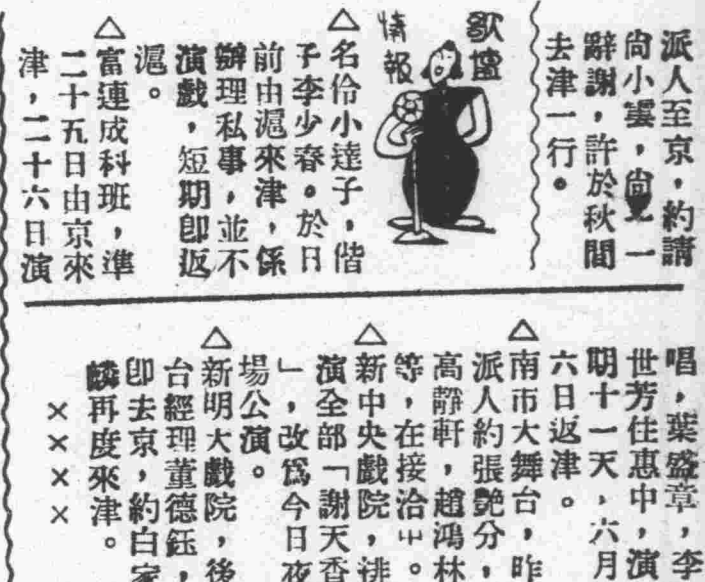 派人至京，約請
尙小雲，尙
一
辭謝，許於秋間
去津一行。
歌壇
情報
△名伶小達子，偕
子李少春。於日
前由滬來津，係
辦理私事，並不
演戲，短期卽返
滬。
△富連成科班，準
二十五日由京來
津，二十六日演
唱，葉盛章，李
世芳佳惠中，演
期十一天，六月
六日返津。
△南市大舞台，昨
派人約張艶分，
高靜軒，趙鴻林
等，在接洽中。
△新中央戲院，排
演全部「謝天香
」，改爲今日夜
場公演。
△新明大戲院，後
台經理董德鈺，
卽去京，約白家
麟再度來津。
××××